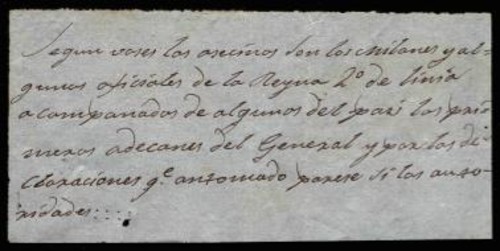 Segun voses los asecinos son los Milanes y al-
gunos oficiales de la Reyna 2º de linia
acompanados de algunos del pais los pri
meros adecanes del General y por las de
claraciones qe an tomado parese si las auto-
ridades::::